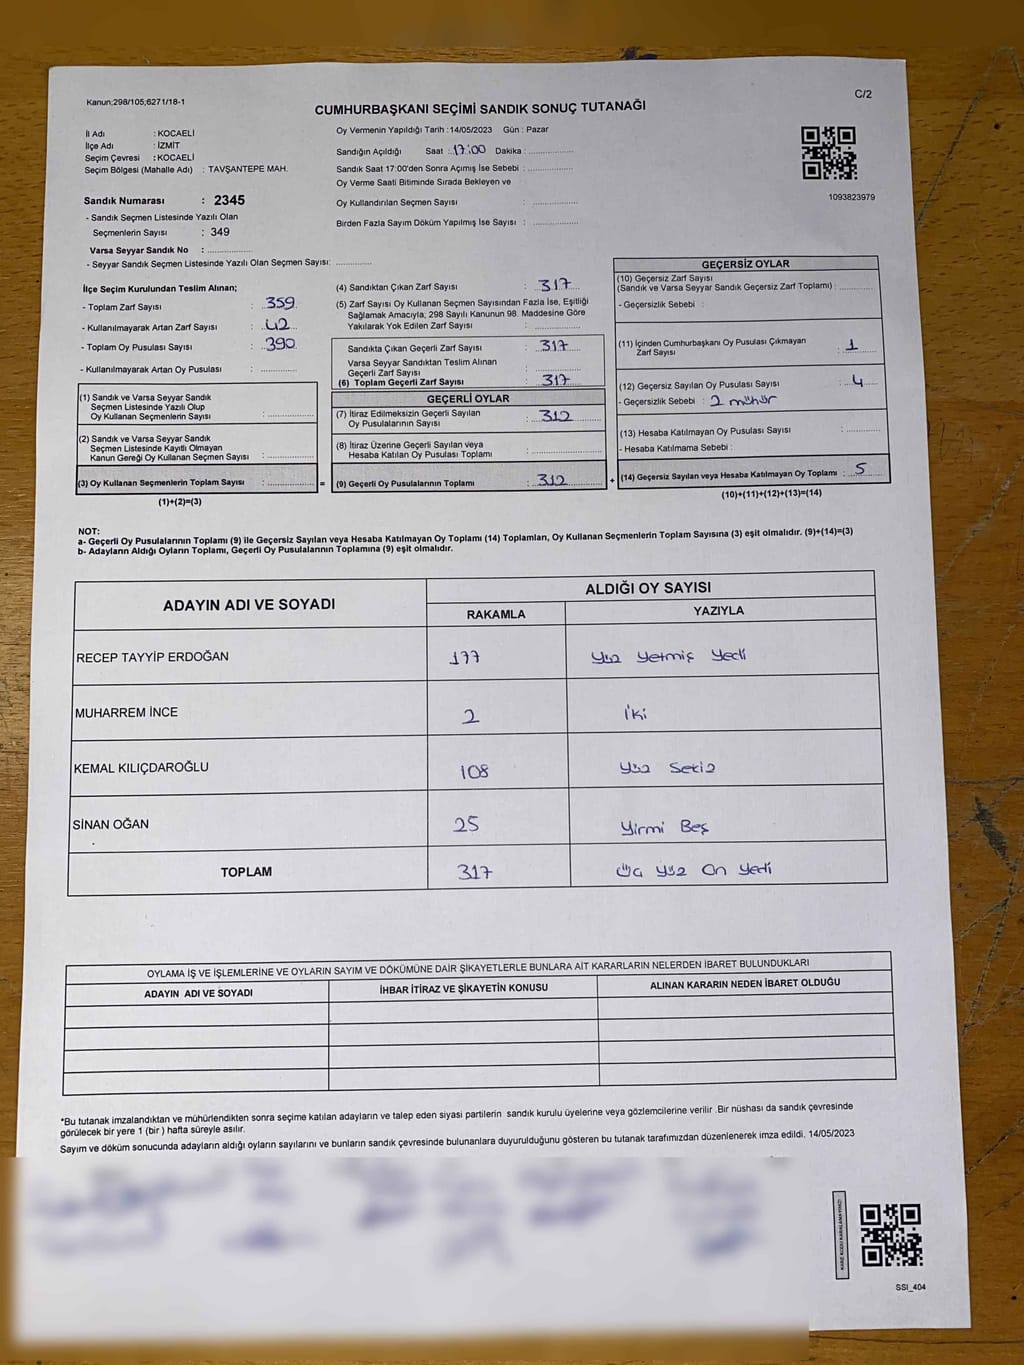 Kanun;298/105;6271/18-1
C/2
CUMHURBAŞKANI SEÇİMİ SANDIK SONUÇ TUTANAĞI
İl Adı : KOCAELİ
İlçe Adı : İZMİT
Seçim Çevresi : KOCAELİ
Seçim Bölgesi (Mahalle Adı) : TAVŞANTEPE MAH.
Sandık Numarası : 2345
- Sandık Seçmen Listesinde Yazılı Olan
Seçmenlerin Sayısı : 349
Varsa Seyyar Sandık No : ..............
- Seyyar Sandık Seçmen Listesinde Yazılı Olan Seçmen Sayısı: ............
Oy Vermenin Yapıldığı Tarih : 14/05/2023 Gün : Pazar
Sandığın Açıldığı Saat : 17:00 Dakika : ...............
Sandık Saat 17:00'den Sonra Açımış İse Sebebi : ...............
Oy Verme Saati Bitiminde Sırada Bekleyen ve
Oy Kullandırılan Seçmen Sayısı : ...............
Birden Fazla Sayım Döküm Yapılmış İse Sayısı : ...............
1093823979
İlçe Seçim Kurulundan Teslim Alınan;
- Toplam Zarf Sayısı : 359
- Kullanılmayarak Artan Zarf Sayısı : 42
- Toplam Oy Pusulası Sayısı : 390
- Kullanılmayarak Artan Oy Pusulası : ............
(1) Sandık ve Varsa Seyyar Sandık
Seçmen Listesinde Yazılı Olup
Oy Kullanan Seçmenlerin Sayısı : ...............
(2) Sandık ve Varsa Seyyar Sandık
Seçmen Listesinde Kayıtlı Olmayan
Kanun Gereği Oy Kullanan Seçmen Sayısı : ...............
(3) Oy Kullanan Seçmenlerin Toplam Sayısı : ............... =
(1)+(2)=(3)
(4) Sandıktan Çıkan Zarf Sayısı : 317
(5) Zarf Sayısı Oy Kullanan Seçmen Sayısından Fazla İse, Eşitliği
Sağlamak Amacıyla; 298 Sayılı Kanunun 98. Maddesine Göre
Yakılarak Yok Edilen Zarf Sayısı : ...............
Sandıkta Çıkan Geçerli Zarf Sayısı : 317
Varsa Seyyar Sandıktan Teslim Alınan
Geçerli Zarf Sayısı : ...............
(6) Toplam Geçerli Zarf Sayısı : 317
GEÇERLİ OYLAR
(7) İtiraz Edilmeksizin Geçerli Sayılan
Oy Pusulalarının Sayısı : 312
(8) İtiraz Üzerine Geçerli Sayılan veya
Hesaba Katılan Oy Pusulası Toplamı : ...............
(9) Geçerli Oy Pusulalarının Toplamı : 312 +
GEÇERSİZ OYLAR
(10) Geçersiz Zarf Sayısı
(Sandık ve Varsa Seyyar Sandık Geçersiz Zarf Toplamı) : ............
- Geçersizlik Sebebi :
(11) İçinden Cumhurbaşkanı Oy Pusulası Çıkmayan
Zarf Sayısı : 1
(12) Geçersiz Sayılan Oy Pusulası Sayısı : 4
- Geçersizlik Sebebi : 2 mühür
(13) Hesaba Katılmayan Oy Pusulası Sayısı : ............
- Hesaba Katılmama Sebebi :
(14) Geçersiz Sayılan veya Hesaba Katılmayan Oy Toplamı : 5
(10)+(11)+(12)+(13)=(14)
NOT:
a- Geçerli Oy Pusulalarının Toplamı (9) ile Geçersiz Sayılan veya Hesaba Katılmayan Oy Toplamı (14) Toplamları, Oy Kullanan Seçmenlerin Toplam Sayısına (3) eşit olmalıdır. (9)+(14)=(3)
b- Adayların Aldığı Oyların Toplamı, Geçerli Oy Pusulalarının Toplamına (9) eşit olmalıdır.
ADAYIN ADI VE SOYADI
ALDIĞI OY SAYISI
RAKAMLA YAZIYLA
RECEP TAYYİP ERDOĞAN 177 Yüz Yetmiş Yedi
MUHARREM İNCE 2 İki
KEMAL KILIÇDAROĞLU 108 Yüz Sekiz
SİNAN OĞAN 25 Yirmi Beş
TOPLAM 317 Üç Yüz On Yedi
OYLAMA İŞ VE İŞLEMLERİNE VE OYLARIN SAYIM VE DÖKÜMÜNE DAİR ŞİKAYETLERLE BUNLARA AİT KARARLARIN NELERDEN İBARET BULUNDUKLARI
ADAYIN ADI VE SOYADI İHBAR İTİRAZ VE ŞİKAYETİN KONUSU ALINAN KARARIN NEDEN İBARET OLDUĞU
*Bu tutanak imzalandıktan ve mühürlendikten sonra seçime katılan adayların ve talep eden siyasi partilerin sandık kurulu üyelerine veya gözlemcilerine verilir .Bir nüshası da sandık çevresinde
görülecek bir yere 1 (bir ) hafta süreyle asılır.
Sayım ve döküm sonucunda adayların aldığı oyların sayılarını ve bunların sandık çevresinde bulunanlara duyurulduğunu gösteren bu tutanak tarafımızdan düzenlenerek imza edildi. 14/05/2023
SSI_404